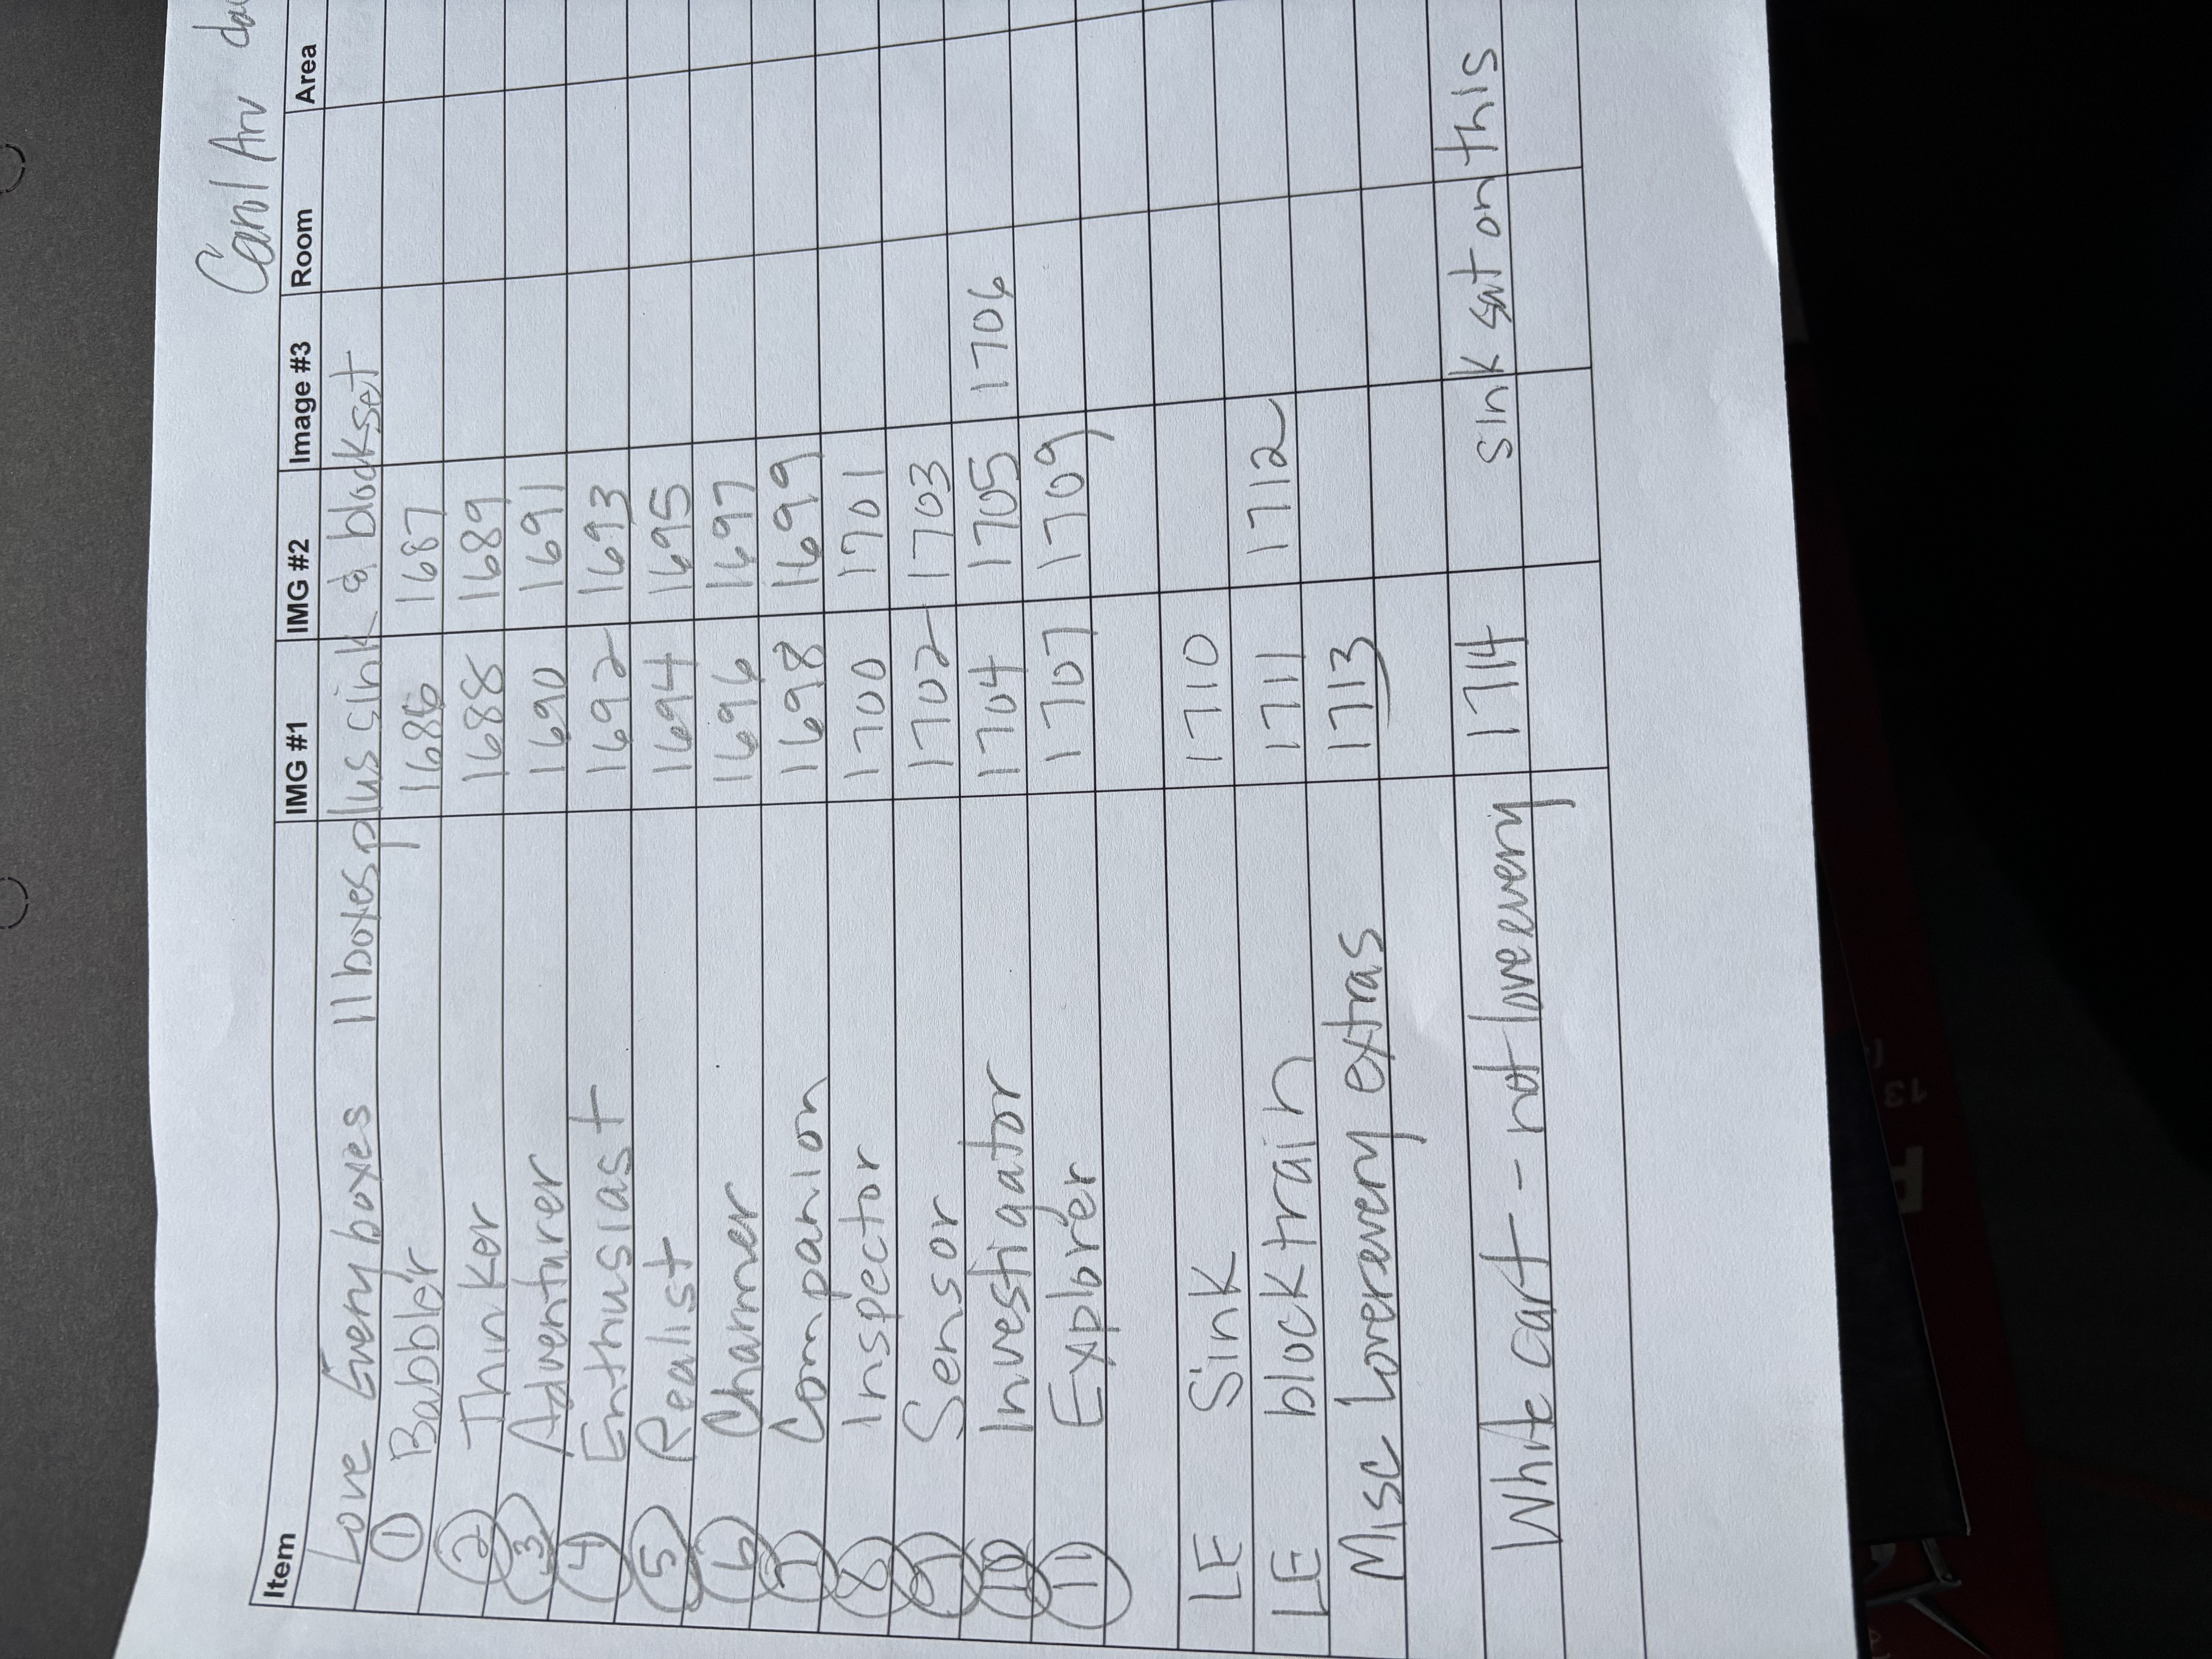 Item IMG #1 IMG #2 Image #3 Room Area
Love Every boxes 11 boxes plus sink & blockset
1 Babbler 1686 1687
2 Thinker 1688 1689
3 Adventurer 1690 1691
4 Enthusiast 1692 1693
5 Realist 1694 1695
6 Charmer 1696 1697
7 Companion 1698 1699
8 Inspector 1700 1701
9 Sensor 1702 1703
10 Investigator 1704 1705 1706
11 Explorer 1707 1709
LE Sink 1710
LE block train 1711 1712
Misc Loveravery extras 1713
White cart - not loveevery 1714 sink sat on this
13